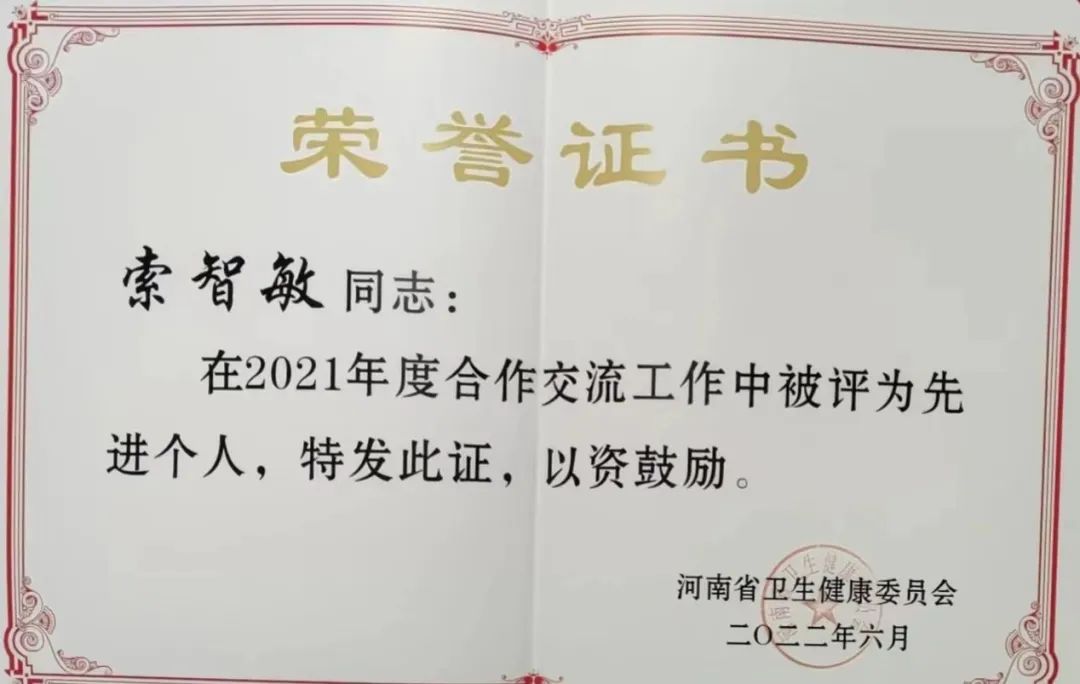 荣誉证书
索智敏同志：
在2021年度合作交流工作中被评为先
进个人，特发此证，以资鼓励。
河南省卫生健康委员会
二〇二二年六月